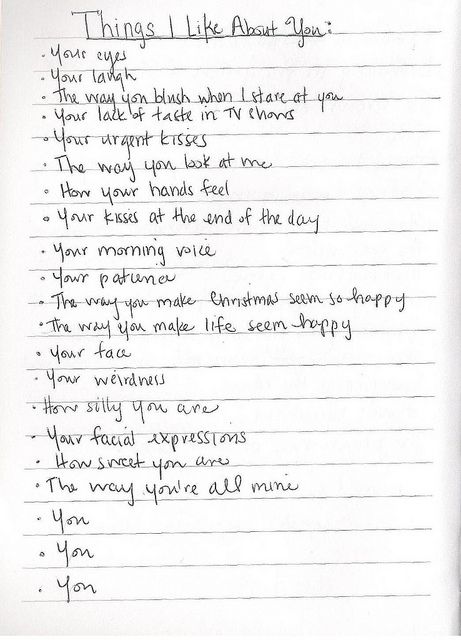 Things I Like About You:
· Your eyes
· Your laugh
· The way you blush when I stare at you
· Your lack of taste in TV shows
· Your urgent kisses
· The way you look at me
· How your hands feel
· Your kisses at the end of the day
· Your morning voice
· Your patience
· The way you make Christmas seem so happy
· The way you make life seem happy
· Your face
· Your weirdness
· How silly you are
· Your facial expressions
· How sweet you are
· The way you're all mine
· You
· You
· You